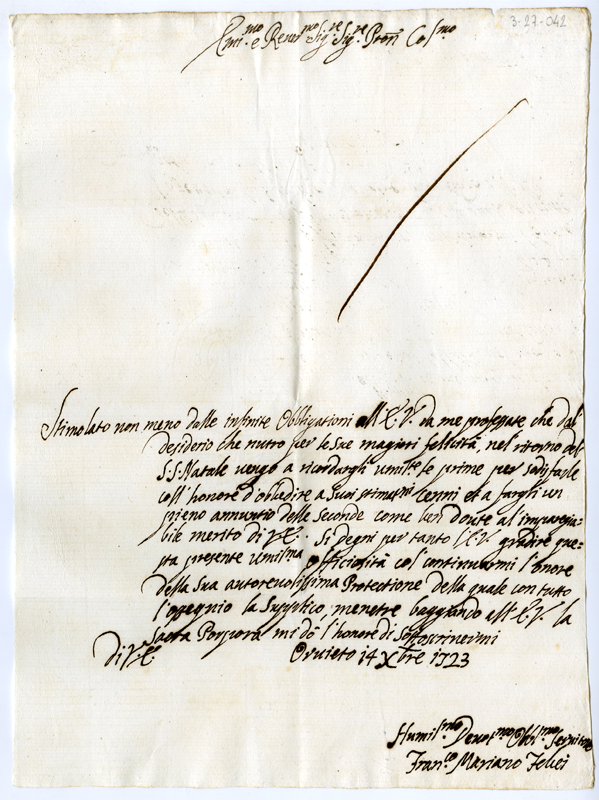 3-27-042
Emi.mo e Rev.mo Sig.re Sig.re Pron Col.mo
Stimolato non meno dalle infinite Obbligationi all'E.V. da me professate che dal
desiderio che nutro per le sue magiori felicità, nel ritorno del
S.S. Natale vengo a ricordargli umil.te le prime per sodisfarle
coll'honore d'obbedire a Suoi stimatmi Cenni et a fargli un
pieno annuntio delle Seconde come ben doute al impareja-
bile merito di V.E. Si degni per tanto l'E.V. gradire que=
sta presente Umilma officiosità col continuarmi l'onore
della Sua autorevolissima Protectione della quale con tutto
l'ossequio la Supplico, menetre baggiando all'E.V. la
Sacra Porpora mi dò l'honore di Sottoscrivermi
Di V.E. Orvieto 14 Xbre 1723
Humil.mo Devot.mo Obbl.mo Servitore
Fran.co Mariano Felici